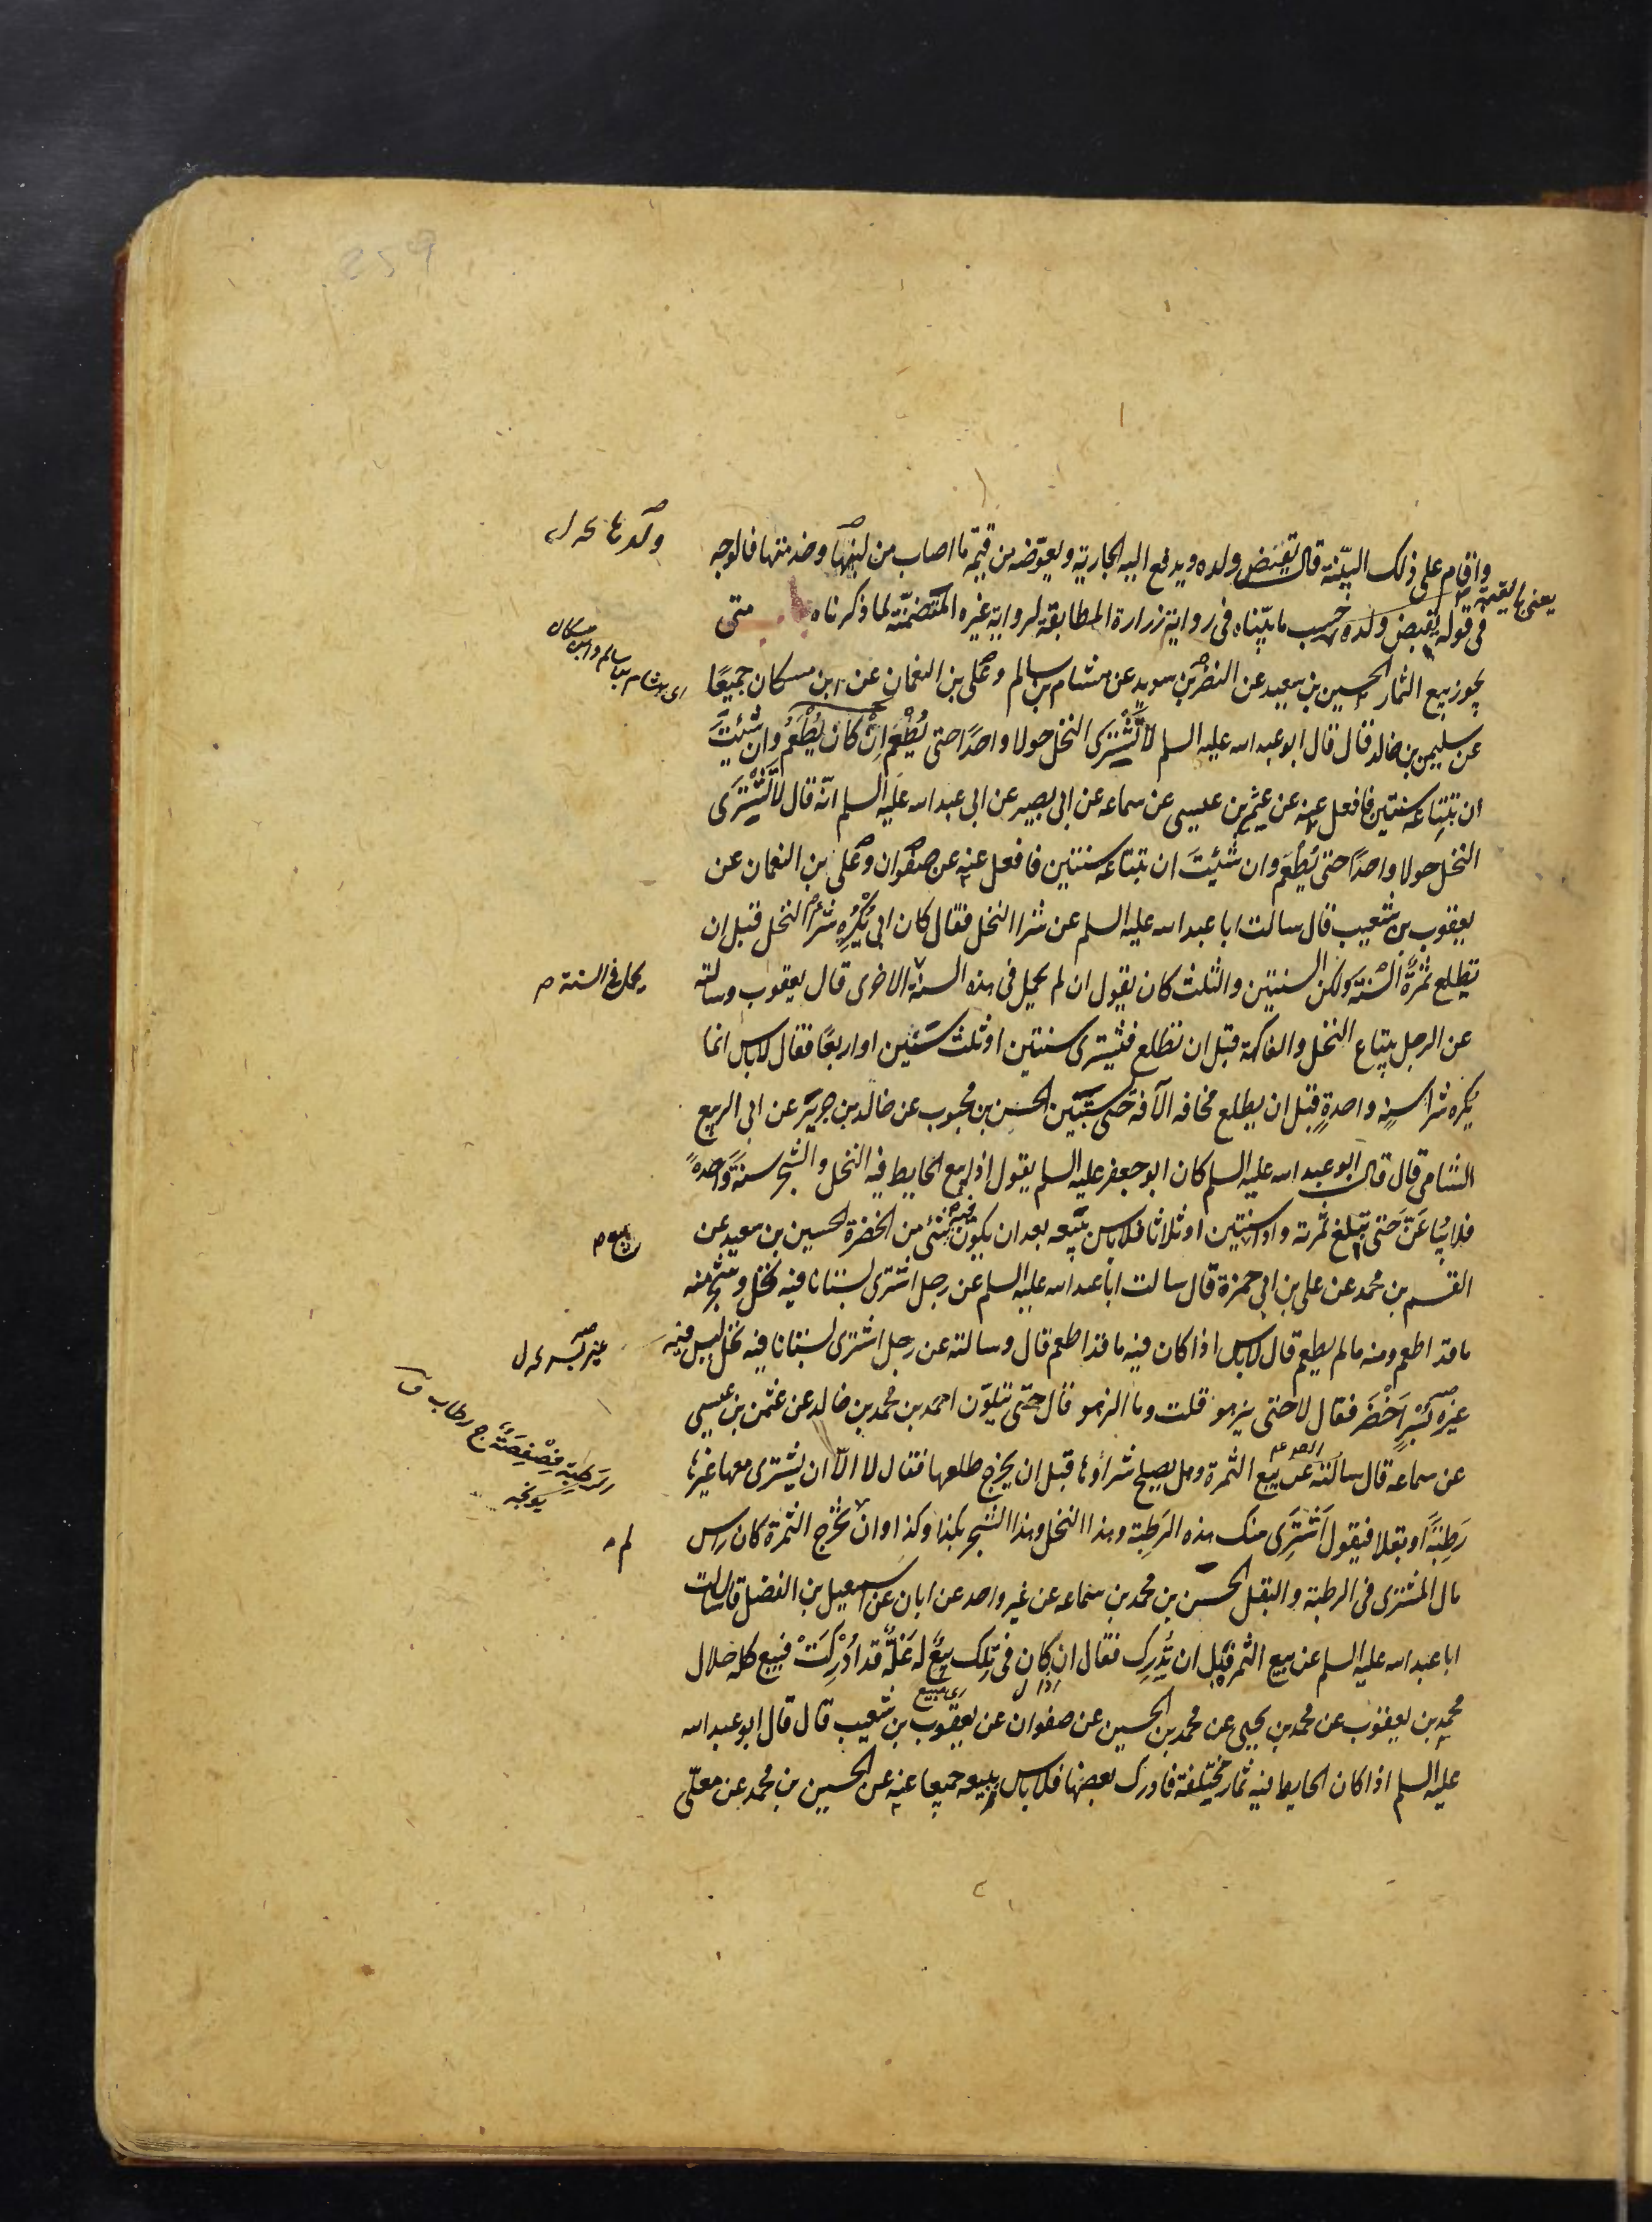 واقام على ذلك البيّنة قال يقبض ولده ويدفع اليه الجارية ويعوّضه من قيمة ما اصاب من لبنها وخدمتها فالوجه
في قوله يقبض ولده حسب ما بيّناه في رواية زرارة المطابقة لرواية غيره المتضمّنة لما ذكرناه باب متى
يجوز بيع الثمار الحسين بن سعيد عن النضر بن سويد عن هشام بن سالم وعلى بن النعمان عن ابن مسكان جميعًا
عن سليمن بن خالد قال قال ابو عبد الله عليه السلم لا تشترى النخل حولا واحدًا حتى يُطْعِمَ اِنْ كان يُطْعِمُ وان شئيتَ
ان تبتاعه سنتين فافعل عنه عن عثمن بن عيسى عن سماعه عن ابى بصير عن ابى عبد الله عليه السلم انّه قال لا تَشْتَرى
النخل حولا واحدًا حتى يُطْعِمَ وان شئيتَ ان تبتاعه سنتين فافعل عنه عن صفوان وعلى بن النعمان عن
يعقوب بن شعيب قال سالت ابا عبد الله عليه السلم عن شرا النخل فقال كان ابى يُكْرِهُ شراءَ النخل قبل ان
تطلع ثمرةُ السنة ولكن السنتين والثلث كان يقول ان لم يحمل فى هذه السنة الاخرى قال يعقوب وسالته
عن الرجل يبتاع النخل والفاكهة قبل ان تطلع فيشترى سنتين او ثلث سنين او اربعًا فقال لاباس انما
يكره شرا سنةٍ واحدةٍ قبل ان يطلع مخافه الآفه حتى تستبين الحسن بن محبوب عن خالد بن جرير عن ابى الربيع
الشامى قال قال ابو عبد الله عليه السلم كان ابو جعفر عليه السلم يقول اذا بيع الحايط فيه النخل والشجر سنةً واحدةً
فلا يُباعَنَّ حَتى تبلغ ثمرته واذا سنتين او ثلاثا فلاباس ببيعه بعد ان يكون فيه شئى من الخضرة الحسين بن سعيد عن
القسم بن محمد عن على بن ابى حمزة قال سالت ابا عبد الله عليه السلم عن رجل اشترى بستانا فيه نخل وشجر منه
ما قد اطعم ومنه ما لم يطعم قال لاباس اذا كان فيه ما قد اطعم قال وسالته عن رجل اشترى بستانا فيه نخل ليس فيه
غيره بُسْرٍ اَخْضَرَ فقال لا حتى يزهو قلت وما الزهو قال حتّى يتلوّن احمد بن محمد بن خالد عن عثمن بن عيسى
عن سماعه قال سالته عن بيع الثمرة وهل يصلح شراؤها قبل ان يخرج طلعها فقال لا الّا ان يشترى معها غيرها
رَطِبَةً او بقلا فيقول اَشْتَرِى منك هذه الرَطِبة وهذا النخل وهذا الشجر بكذا وكذا وان لم تخرج الثمرة كان راس
مال المشترى فى الرطبة والبقل الحسن بن محمد بن سماعه عن غير واحد عن ابان عن اسمعيل بن الفضل قال سالت
ابا عبد الله عليه السلم عن بيع الثمر قبل ان يُدْرِك فقال ان كان فى تلك بيعٌ له غلّةٌ قد اُدْرِكَتْ فبيع كله حلال
محمد بن يعقوب عن محمد بن يحيى عن محمد بن الحسين عن صفوان عن يعقوب بن شعيب قال قال ابو عبد الله
عليه السلم اذا كان الحايط فيه ثمار مختلفة فادرك بعضها فلاباس ببيعه جميعا عنه عن الحسين بن محمد عن معلّى
اى هشام بن سالم وابن مسكان
يحمل فى السنة م
رَطبة فِصْفِصَةٌ ج رطاب ق
يونجه
لم م